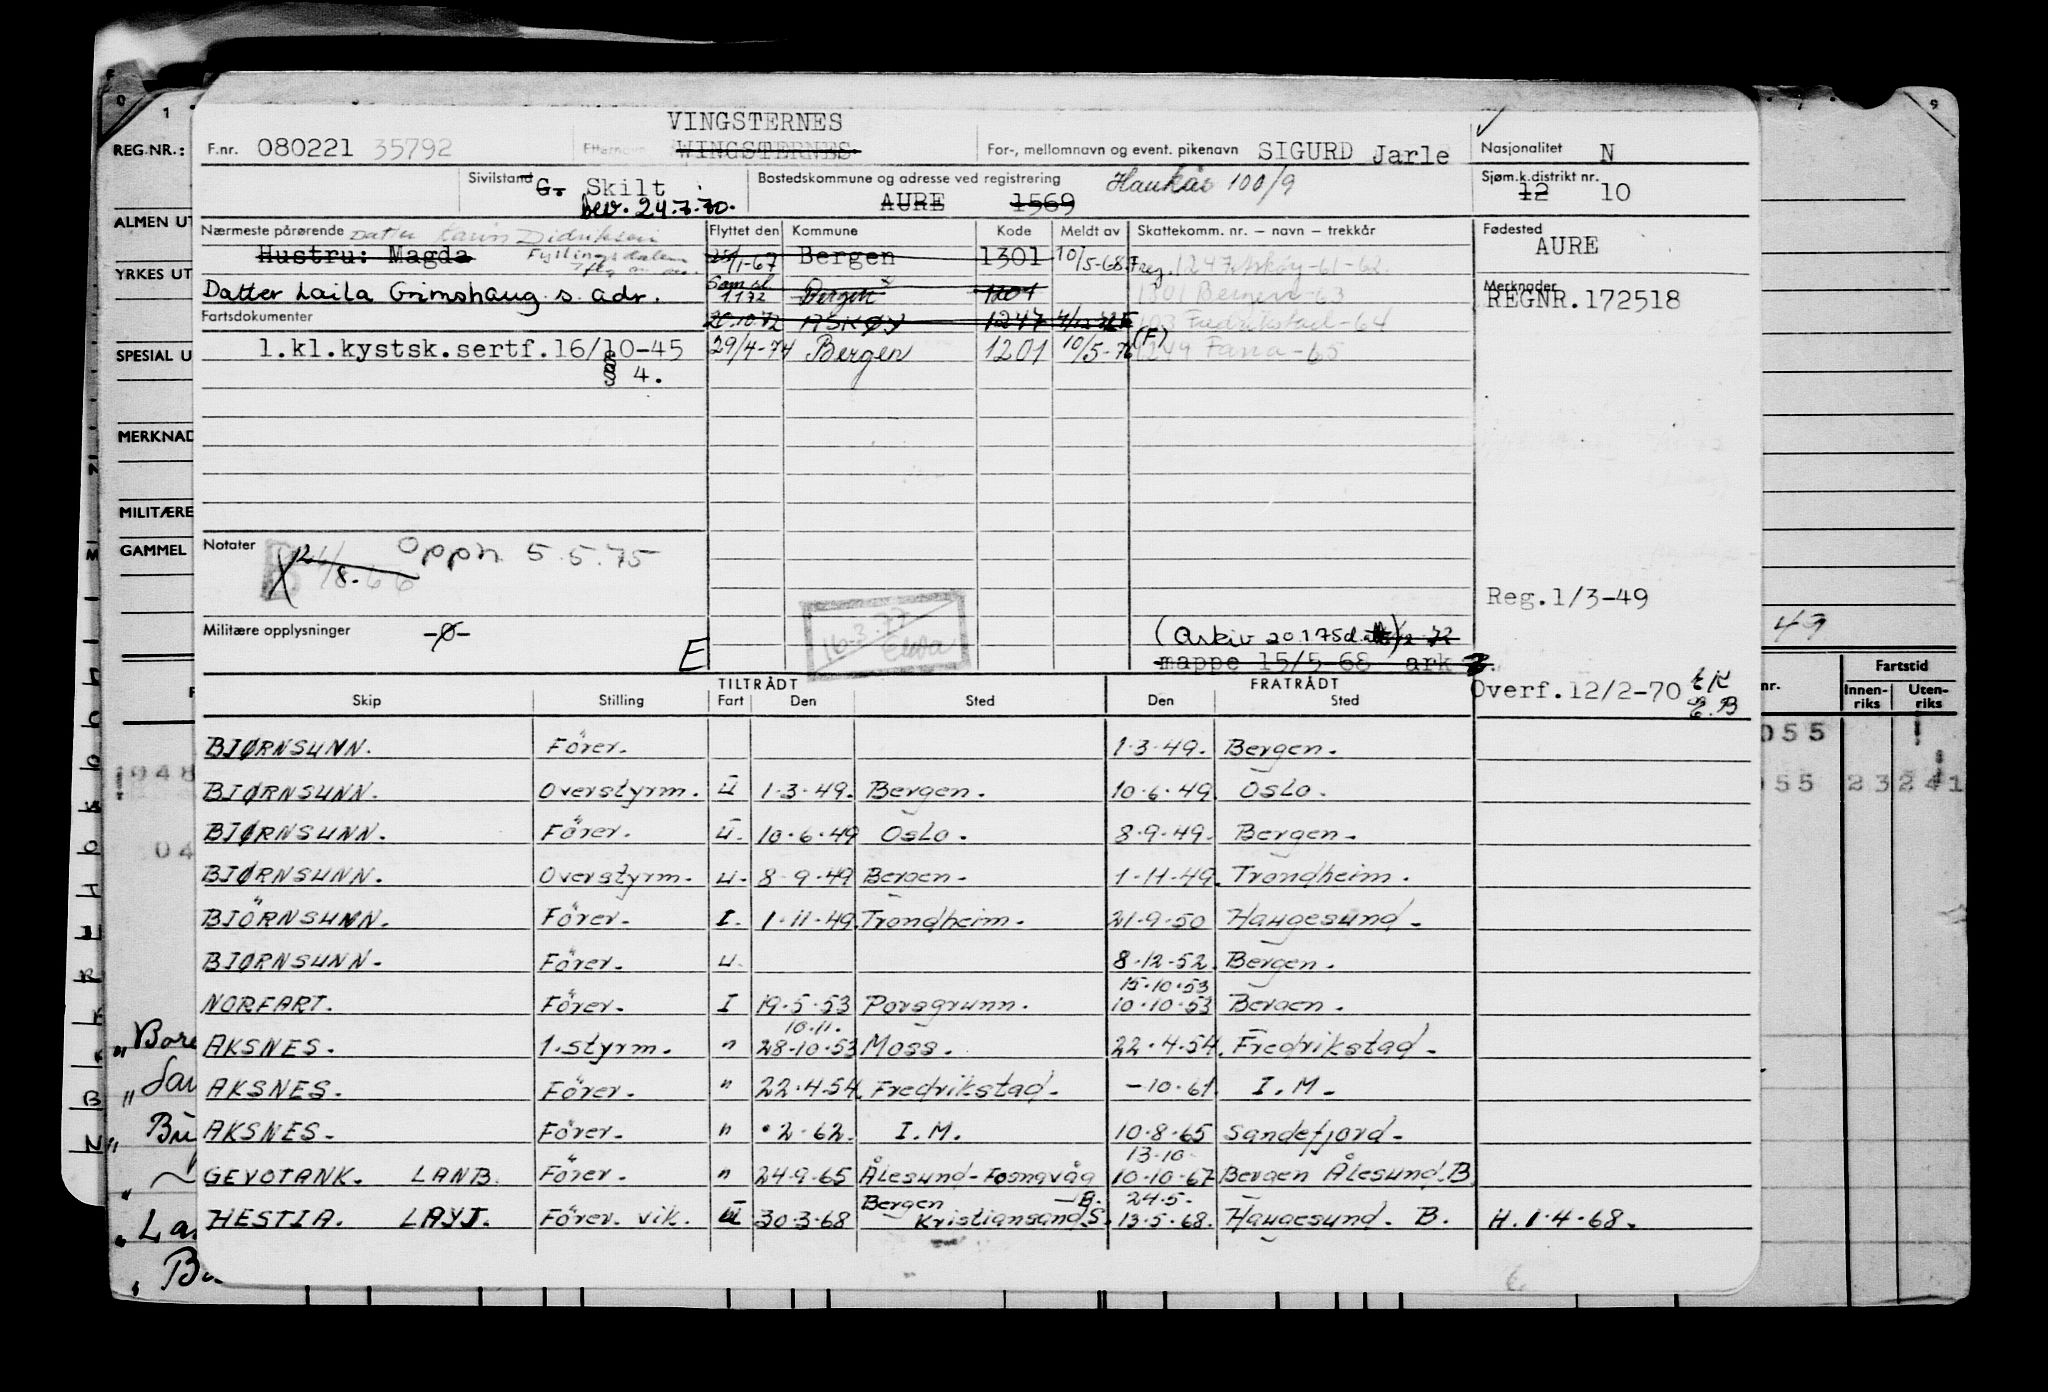 VINGSTERNES
REG.NR.: F.nr. 080221 35792 Etternavn WINGSTERNES For-, mellomnavn og event. pikenavn SIGURD Jarle Nasjonalitet N
Sivilstand G. Skilt Bostedskommune og adresse ved registrering Haukås 100/9 Sjøm.k.distrikt nr.
bev. 24.7.70. AURE 1569 12 10
ALMEN UT
Nærmeste pårørende Datter Karin Didriksen Flyttet den Kommune Kode Meldt av Skattekomm. nr. – navn – trekkår Fødested
Hustru: Magda Fyllingsdalen 1-67 Bergen 1301 10/5-68 1247 Askøy-61-62. AURE
YRKES UT
Datter Laila Grimshaug s. adr. 1172 Bergen 1201 1301 Bergen-63 Merknader
REGNR.172518
Fartsdokumenter 20.10.72 ASKØY 1247 Fredrikstad-64
SPESIAL U 1.kl.kystsk.sertf.16/10-45 29/4-74 Bergen 1201 10/5-76 (F) 1249 Fana-65
§ 4.
MERKNAD
MILITÆRE
GAMMEL Notater Oppn 5.5.75
8-66
Reg.1/3-49
16.3.77
Militære opplysninger -0- E
(Arkiv 20175d. 72
49
mappe 15/5-68 ark
TILTRÅDT FRATRÅDT Overf.12/2-70 E.B
Skip Stilling Fart Den Sted Den Sted
nr. Fartstid
Innen-riks Uten-riks
BJØRNSUNN. Förer. 1.3.49. Bergen.
055
BJØRNSUNN. Overstyrm. U 1.3.49. Bergen. 10.6.49. Oslo.
1948 055 23 241
BJØRNSUNN. Förer. U. 10.6.49 Oslo. 8.9.49. Bergen.
04
BJØRNSUNN. Overstyrm. U. 8-9-49 Bergen. 1-11-49. Trondheim.
BJÖRNSUNN. Förer. I. 1.11.49. Trondheim. 21.9.50 Haugesund.
BJØRNSUNN. Förer. U. 8.12.52. Bergen.
15.10.53
NORFART. Förer. I 19.5.53 Porsgrunn. 10.10.53 Bergen.
10.11.
AKSNES. 1.styrm. " 28.10.53 Moss. 22.4.54. Fredrikstad.
AKSNES. Förer. " 22.4.54. Fredrikstad. -10.61. I.M.
AKSNES. Förer. " 2-62. I.M. 10.8.65 Sandefjord.
13.10.
GEVOTANK. LANB. Förer. " 24.9.65 Ålesund-Fosnavåg 10.10.67 Bergen Ålesund.B
Bergen -B. 24.5.
HESTIA. LAYJ. Förer. vik. U 30.3.68 Kristiansand.S. 13.5.68. Haugesund. B. H.1.4.68.